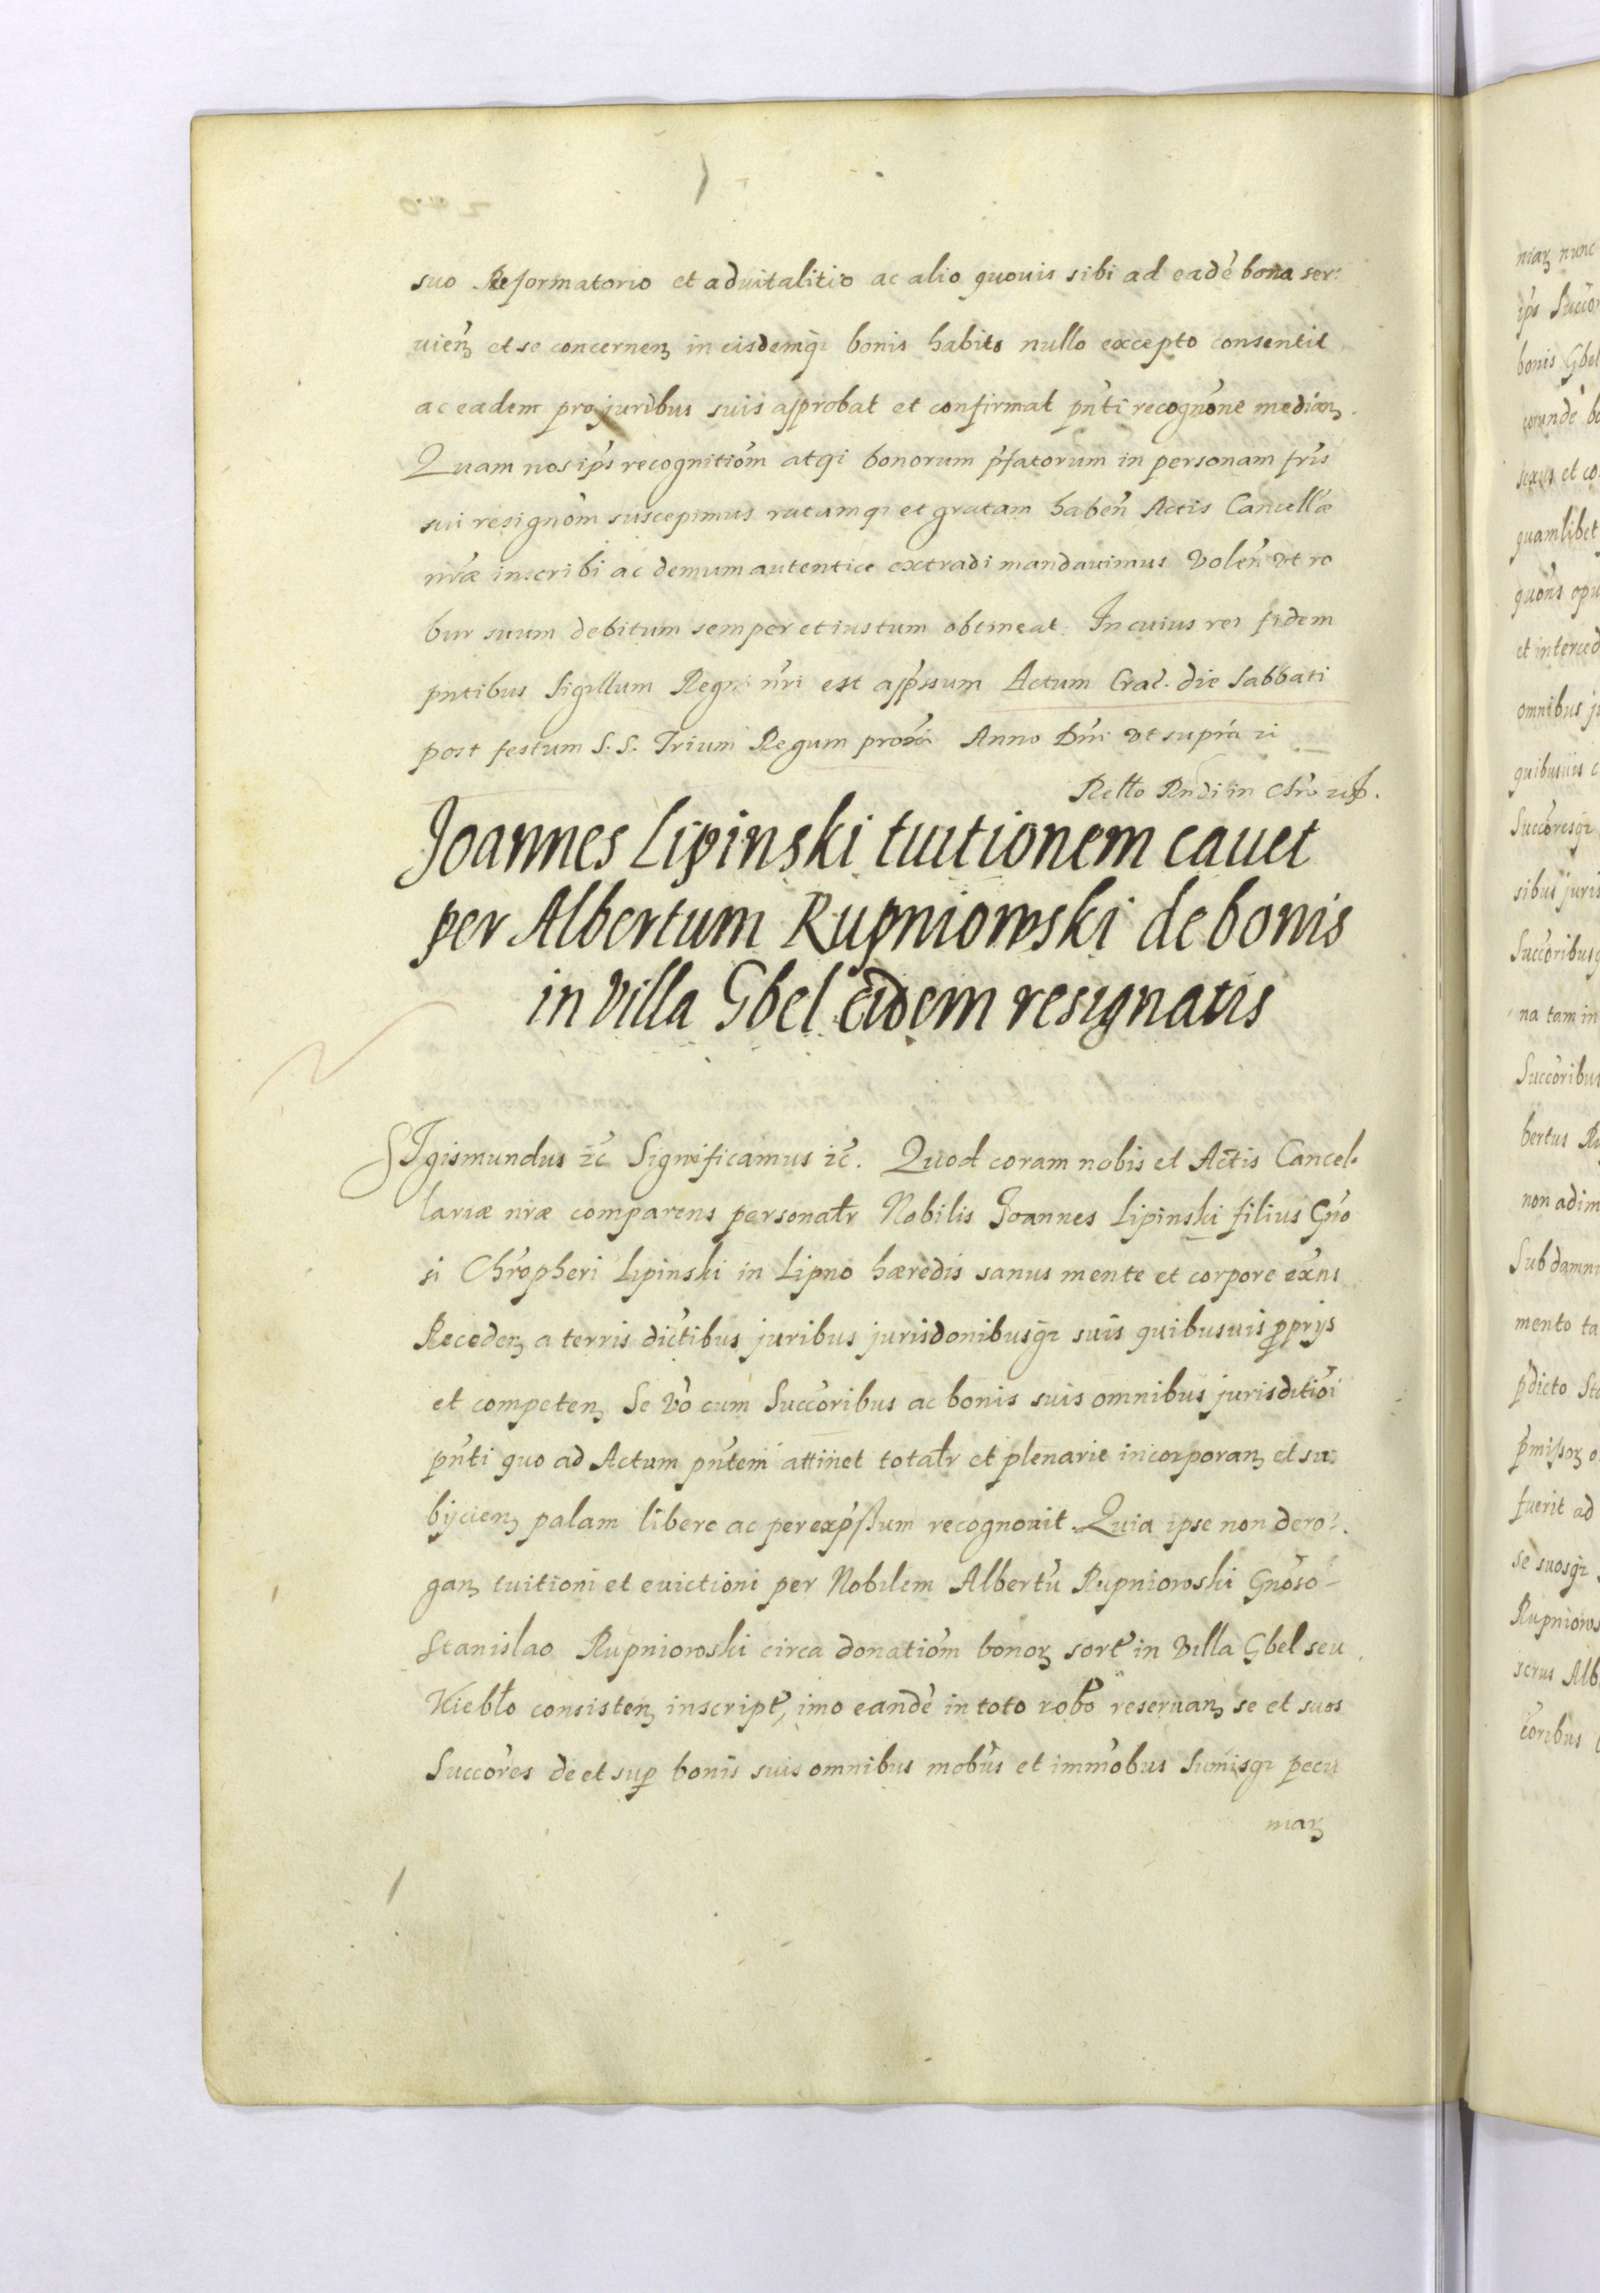 suo Reformatorio et aduitalitio ac alio quouis sibi ad eadē bona ser:
uien̄ȝ et se concernenȝ in eisdemq̄ȝ bonis habito nullo excepto consentit
ac eadem pro juribus suis approbat et confirmat pn̄ti recogn̄one medianȝ.
Quam nos ip̄s recognitiōm atqȝ bonorum p̄fatorum in personam fr̄is
sui resignōm suscepimus ratamqȝ et gratam haben̄ Actis Cancell̄æ
nr̄æ inscribi ac demum autentice extradi mandauimus volen̄ vt ro
bur suum debitum semper et iustum obtineat. In cuius rei fidem
pn̄tibus Sigillum Regni nr̄i est app̄ssum Actum Crac. die Sabbati
post festum S. S. Trium Regum prox̄i Anno Dn̄i vt supra
Rel̄to Rn̄di in Chr̄o
Joannes Lipinski tuitionem cauet
per Albertum Rupniowski de bonis
in villa Gbel eidem resignatis
SIgismundus ꝛc̄ Significamus ꝛc̄. Quod coram nobis et Actis Cancel-
lariæ nr̄æ comparens personałr Nobilis Joannes Lipinski filius Gn̄o
si Chr̄opheri Lipinski in Lipno hæredis sanus mente et corpore ex̄ns
Recedenȝ a terris dic̄tibus juribus jurisdōnibusq̄ȝ suis quibusuis ꝓprijs
et competenȝ Se vō cum Succōribus ac bonis suis omnibus jurisditiōi
pn̄ti quo ad Actum pn̄tem attinet totałr et plenarie incorporanȝ et su:
bijcienȝ palam libere ac per exp̄ssum recognouit. Quia ipse non dero:
ganȝ tuitioni et euictioni per Nobilem Albertū Rupniowski Gn̄oso
Stanislao Rupniowski circa donatiōm bonorȝ sort̄ in villa Gbel seu
Kiebło consistenȝ inscript̄, imo eandē in toto robō reseruanȝ se et suos
Succōres de et suꝑ bonis suis omnibus mob̄us et imm̄obus Sum̄isqȝ pecu
niarȝ